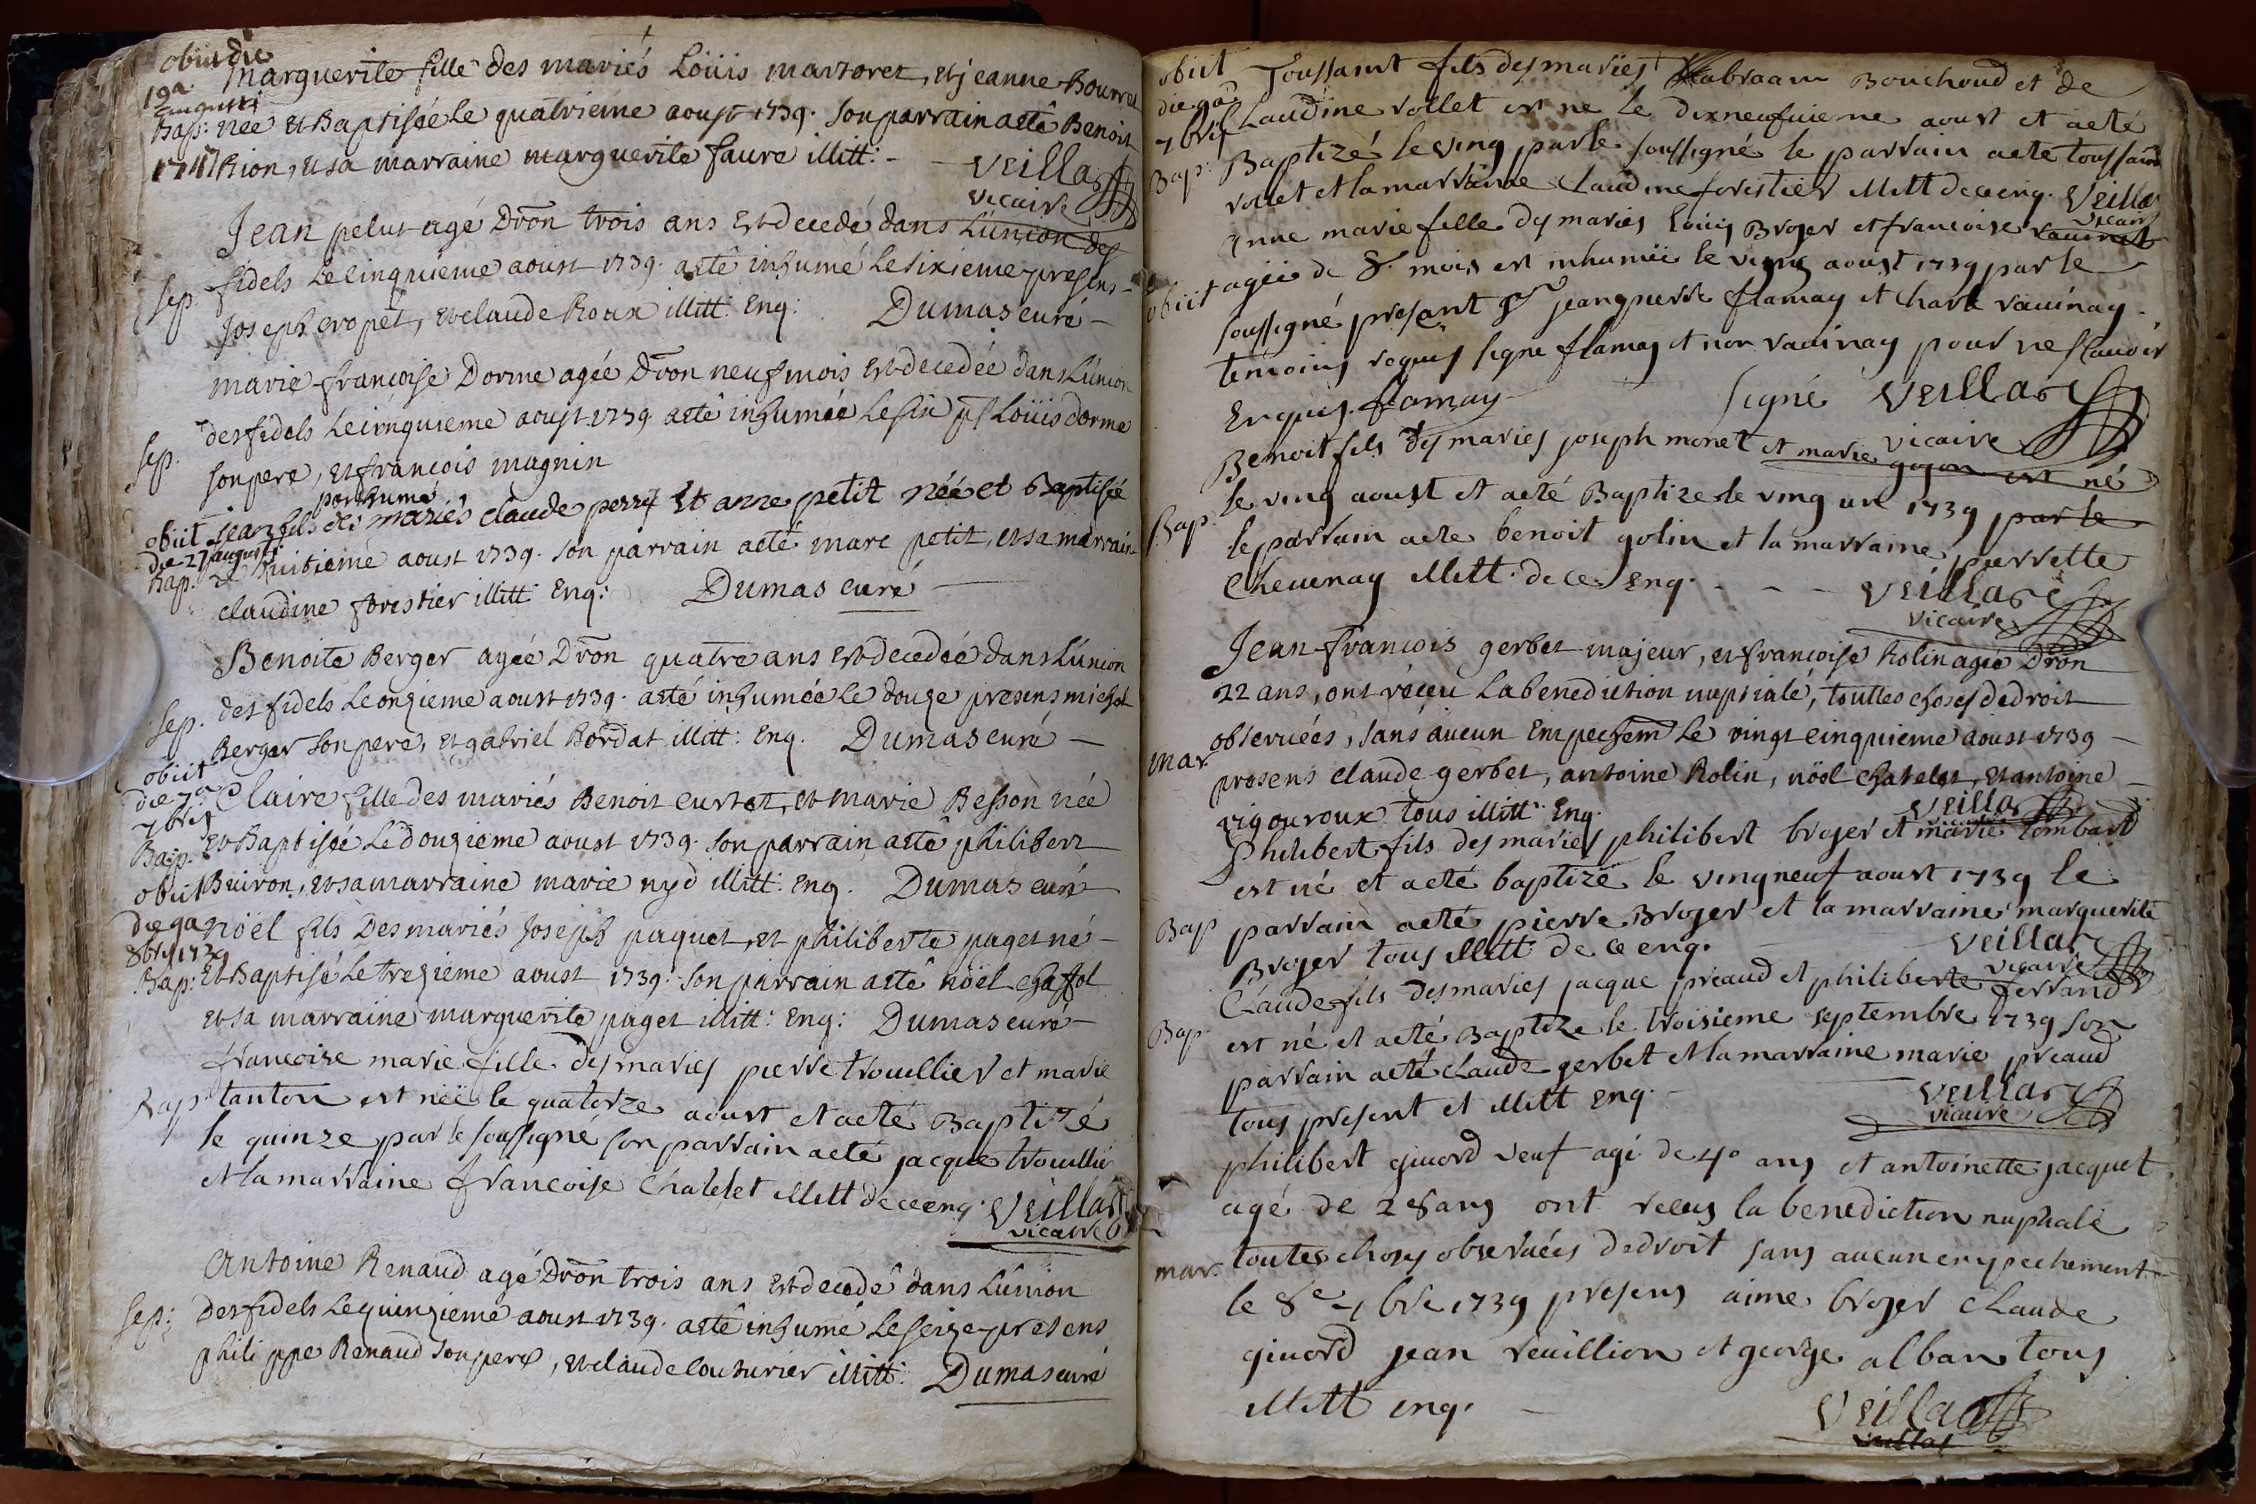 obiit die
19a augusti
1747
Marguerite fille des mariés Loüis martoret, et jeanne Bourret
Bap: née Et Baptisée le quatrieme aoust 1739. son parrain a eté Benoit
Rion, et sa marraine marguerite faure illitt: - Veillas
vicaire
Jean pelut agé d'ron trois ans Est decedé dans L'union des
Sep. fidels Le cinquieme aoust 1739. a eté inhumé Le sixieme presens -
Joseph cropet, et claude Roux illitt: Enq: Dumas curé -
marie françoise Dorme agée d'ron neuf mois Est decedée dans L'union
Sep. des fidels Le cinquieme aoust 1739 a eté inhumée Le six pst Loüis dorme
son pere, et françois magnin
posthume
obiit Jean fils des mariés claude perry Et anne petit née et baptisée
die 27 augusti
Bap. Le huitieme aoust 1739. son parrain a eté marc petit, et sa marraine
claudine forestier illitt: Enq: Dumas curé -
Benoite Berger agée d'ron quatre ans Est decedée dans L'union
Sep. des fidels Le onzieme aoust 1739. a eté inhumée Le douze presens michel
Berger son pere, et gabriel Bordat illitt: Enq. Dumas curé -
obiit
die 7a 7bris
Claire fille des mariés Benoit curtet, et marie Besson née
Bap. Et Baptisée Le douzieme aoust 1739. son parrain a eté philibert
Buiron, et sa marraine marie nyd illitt: Enq. Dumas curé
obiit
die 9a 8bris 1739
Noël fils Des mariés Joseph paquet, et philiberte paget né -
Bap: Et Baptisé Le trezieme aoust 1739. son parrain a eté noël chaffol
et sa marraine marguerite paget illitt: Enq: Dumas curé -
francoise marie fille des maries pierre trouillier et marie
Bap tanton est neë le quatorze aoust et a eté Baptizé
le quinze par le soussigné son parrain a eté jacque trouillier
et la marraine francoise Chatelet illitt de ce enq. Veillas
vicaire
Antoine Renaud agé d'ron trois ans Est decedé dans L'union
Sep: des fidels Le quinzieme aoust 1739. a eté inhumé Le seize presens
philippe Renaud son pere, et claude couturier illitt: Dumas curé
obiit
die 9a 7bris
Toussaint fils des mariés abraam Bouchoud et de
Claudine rollet est ne le dixneufuieme aoust et a eté
Bap: Baptizé le ving par le soussigné le parrain a eté toussain
rollet et la marraine Claudine forestier illitt de ce enq. Veillas
vicaire
obiit Anne marie fille des maries Louis Broyer et francoise rauinet
ageé de 8. mois est inhumeë le ving aoust 1739 par le
soussigné present jeanpierre flamay et charle rauinay
temoins requis signe flamay et non rauinay pour ne scauoir
Enquis. flamay signé Veillas
vicaire
Benoit fils des maries joseph monet et marie goyon est né
Bap. le ving aoust et a eté Baptize le ving un 1739 par le
le parrain a eté benoit golin et la marraine pierrette
Cheuenay illitt. de ce Enq. - - - Veillas
vicaire
Jean françois gerbet majeur, et françoise Rolin agée d'ron
22 ans, ont réçeu La benediction nuptiale, touttes choses de droit
mar. observées, sans aucun Empechem Le vingt cinquieme aoust 1739 -
presens claude gerbet, antoine Rolin, nöel chatelet, et antoine -
vigouroux tous illitt: Enq. Veillas
vicaire
Philibert fils des maries philibert broyer et marie Lombard
est né et a eté baptizé le vingneuf aoust 1739 le
Bap parrain a eté pierre Broyer et la marraine marguerite
Broyer tous illitt: de ce enq. Veillas
vicaire
Claude fils des maries jacque preaud et philiberte ferrand
Bap. est né et a eté Baptize le troisieme septembre 1739 son
parrain a eté claude gerbet et la marraine marie preaud
tous present et illitt enq. Veillas
vicaire
philibert giuord veuf agé de 40 ans et antoinette jacquet
agé de 28 ans ont receus la benediction nuptiale
mar. toutes choses obseruées de droit sans aucun empechement -
le 8e 7bre 1739 presens aime broyer claude
giuord jean reuillion et george alban tous
illitt enq. - Veillas